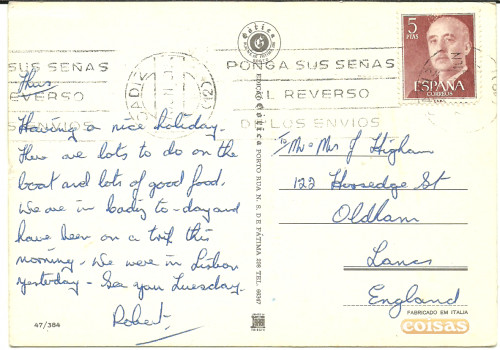 Thurs
Having a nice holiday.
There are lots to do on the
boat and lots of good food.
We are in Cadiz to-day and
have been on a trip this
morning. We were in Lisbon
yesterday - See you Tuesday.
Robert.
47/384
EDIÇÃO Gótica PORTO RUA N. S. DE FÁTIMA 298 TEL.
CADIZ
PONGA SUS SEÑAS
AL REVERSO
DE LOS ENVIOS
SUS SEÑAS
REVERSO
ENVIOS
5
PTAS
ESPAÑA
CORREOS
To Mr & Mrs J Higham
122 Horsedge St
Oldham
Lancs
England
FABRICADO EM ITALIA
coisas